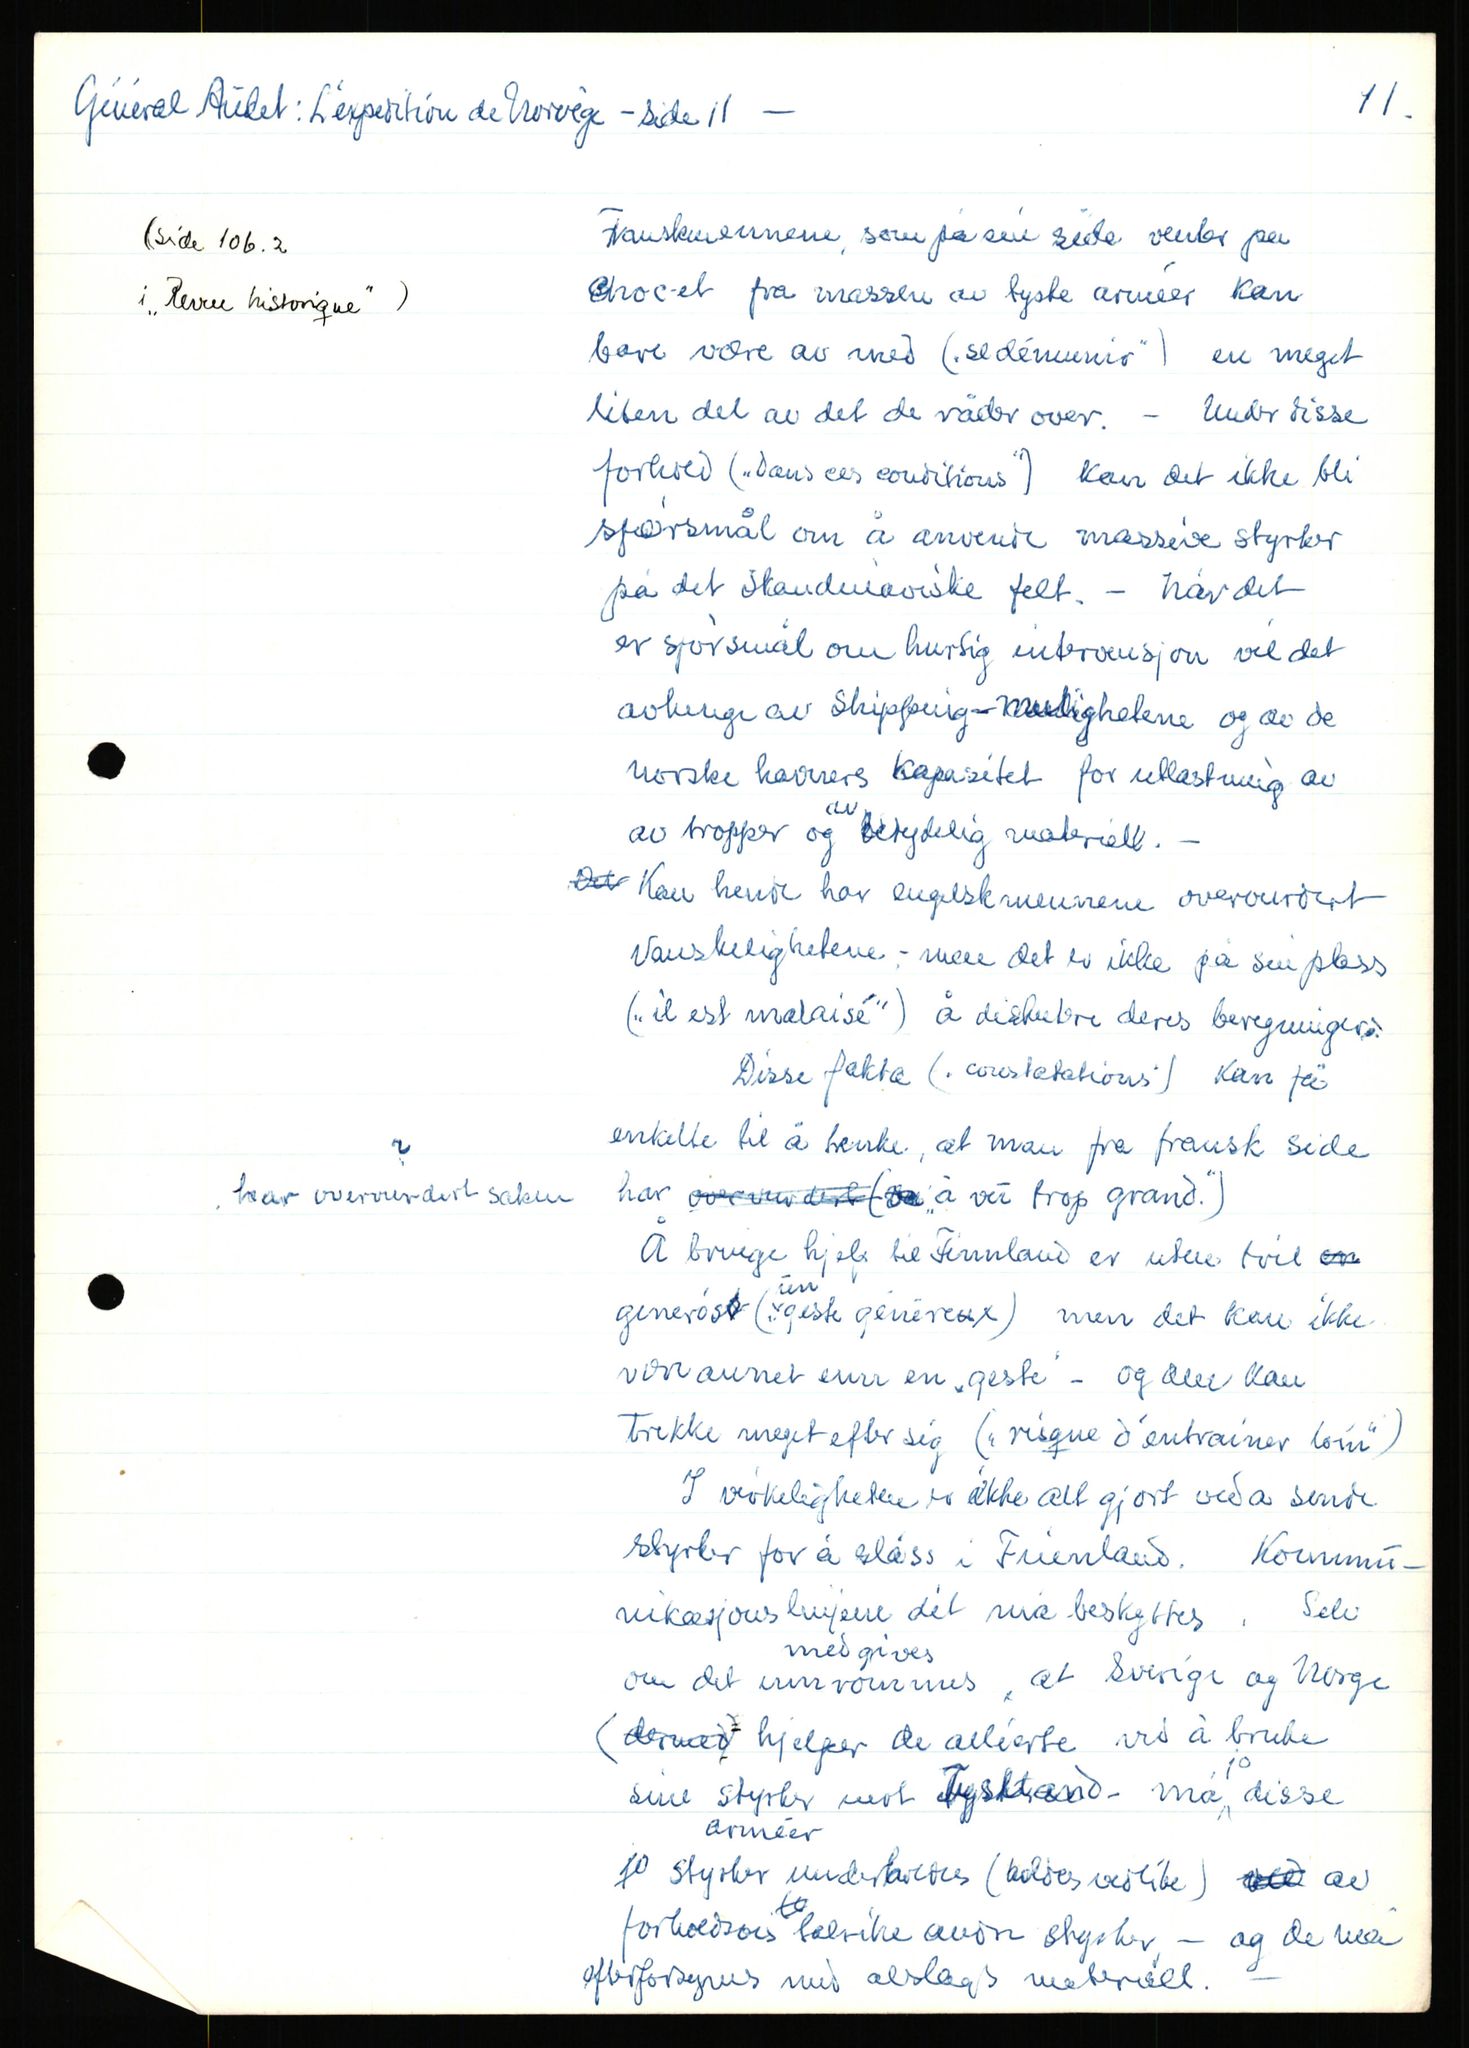 Général Audet: L'éxpedition de Norvège - side 11 —
11.
(side 106.2
i „Revue historique")
Franskmennene, som på sin side venter på
choc-et fra massen av tyske arméer kan
bare være av med („se démunir") en meget
liten del av det de råder over. - Under disse
forhold („dans ces conditions") kan det ikke bli
spørsmål om å anvende massive styrker
på det skandinaviske felt. - Når det
er spørsmål om hurtig intervensjon vil det
avhenge av skipping-mulighetene og av de
norske havners kapasitet for utlastning av
av tropper og av betydelig materiell. -
Det Kan hende har engelskmennene overvurdert
vanskelighetene, - men det er ikke på sin plass
(„il est malaisé") å diskutere deres beregninger.
Disse fakta („constatations") kan få
enkelte til å tenke, at man fra fransk side
?
har overvurdert saken
har overvurdert („à vu trop grand.")
Å bringe hjelp til Finnland er uten tvil en
generøst („un geste généreux) men det kan ikke
være annet enn en „geste" - og den kan
trekke meget efter sig („risque d'entrainer loin")
I virkeligheten er ikke alt gjort ved å sende
styrker for å slåss i Finnland. Kommu-
nikasjonslinjene dit må beskyttes. Selv
medgives
om det innrømmes, at Sverige og Norge
(dermed hjelper de allierte ved å bruke
sine styrker mot Tyskland - må jo disse
arméer
jo styrker underholdes (holdes vedlike) ved av
forholdsvis talrike andre styrker, - og de må
efterforsynes med alslags materiell. -